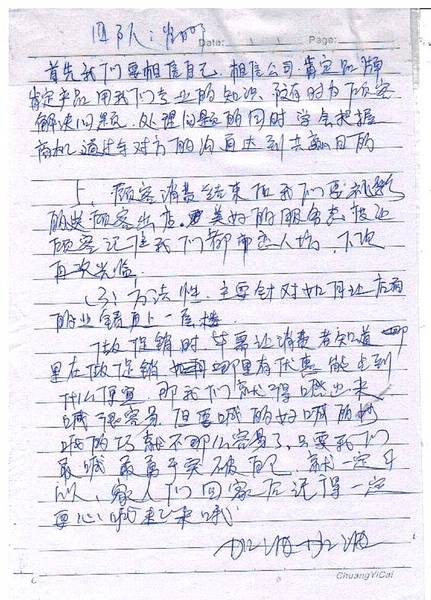 团队:
Date: Page:
首先我们要相信自己,相信公司,肯定品牌
肯定产品用我们专业的知识,随时为顾客
解决问题,处理问题的同时学会把握
商机通过与对方的沟通达到共赢目的
5、顾客消费结束后我们要礼貌
的送顾客出店,美好的服务
顾客记住我们都市恋人坊,下次
再次光临.
(3)方法性.主要针对如何让店面
的业绩更上一层楼
做促销时 毕竟让消费者知道 那
里在做促销 那里有优惠 能占到
什么便宜.那我们就得喊出来
喊很容易 但要喊的好 喊的
喊的巧就不那么容易了,只要我们
敢喊 敢勇于突破自己.就一定可
以、家人们回家后记得一定
要
ChuangYiCai